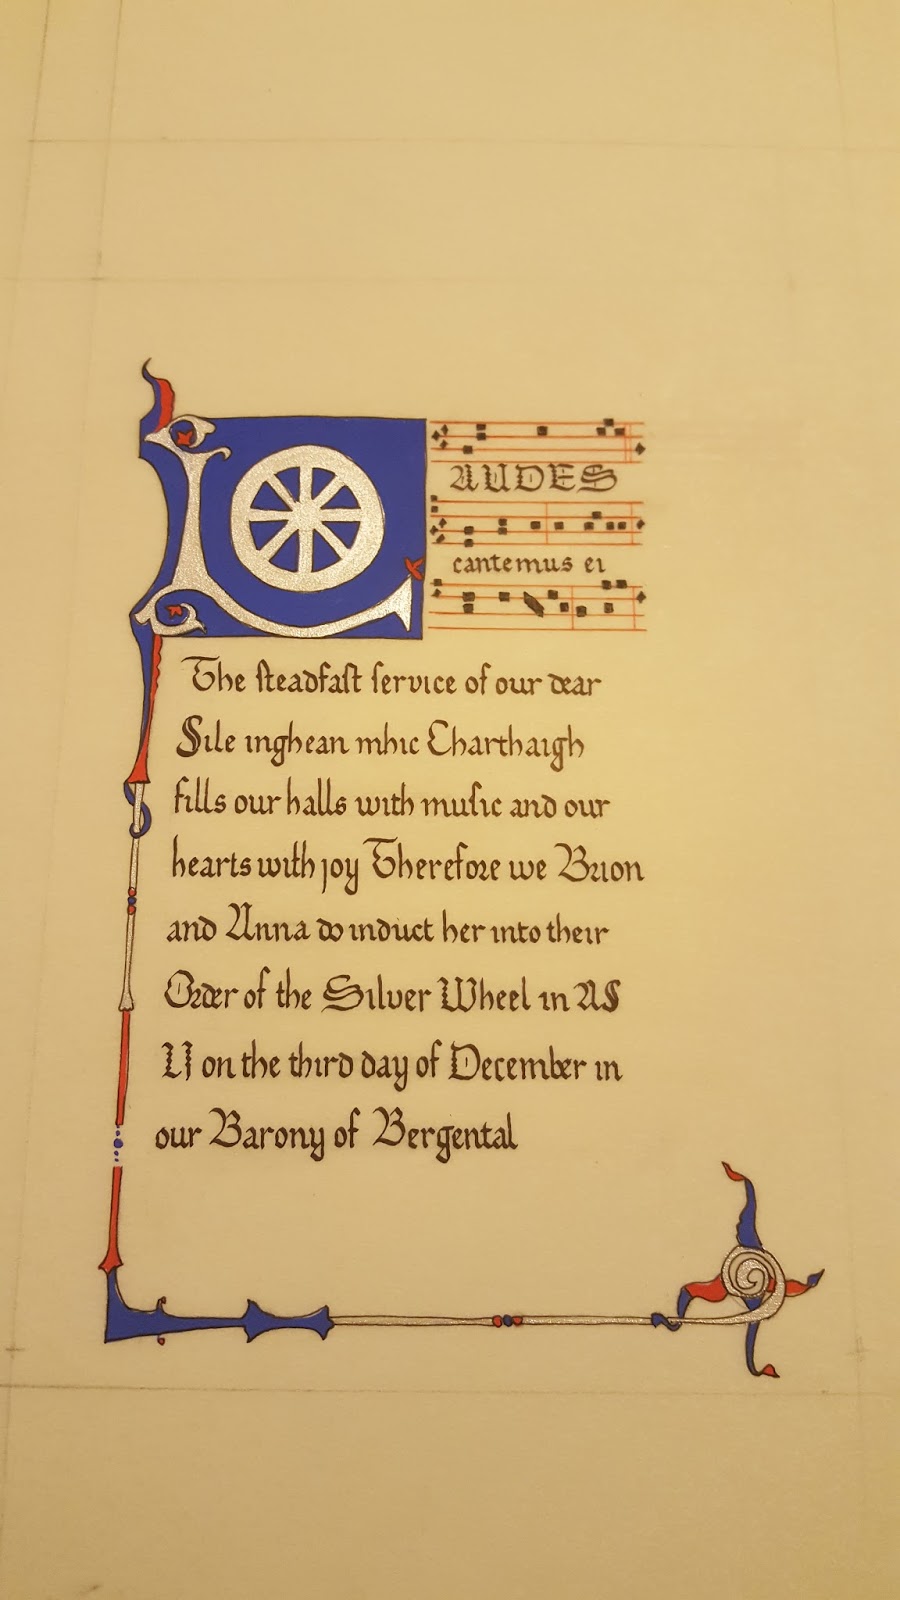 LAUDES
cantemus ei
The ſteadfaſt ſervice of our dear
Sile inghean mhic Charthaigh
fills our halls with muſic and our
hearts with joy Therefore we Brion
and Anna do induct her into their
Order of the Silver Wheel in AS
LI on the third day of December in
our Barony of Bergental